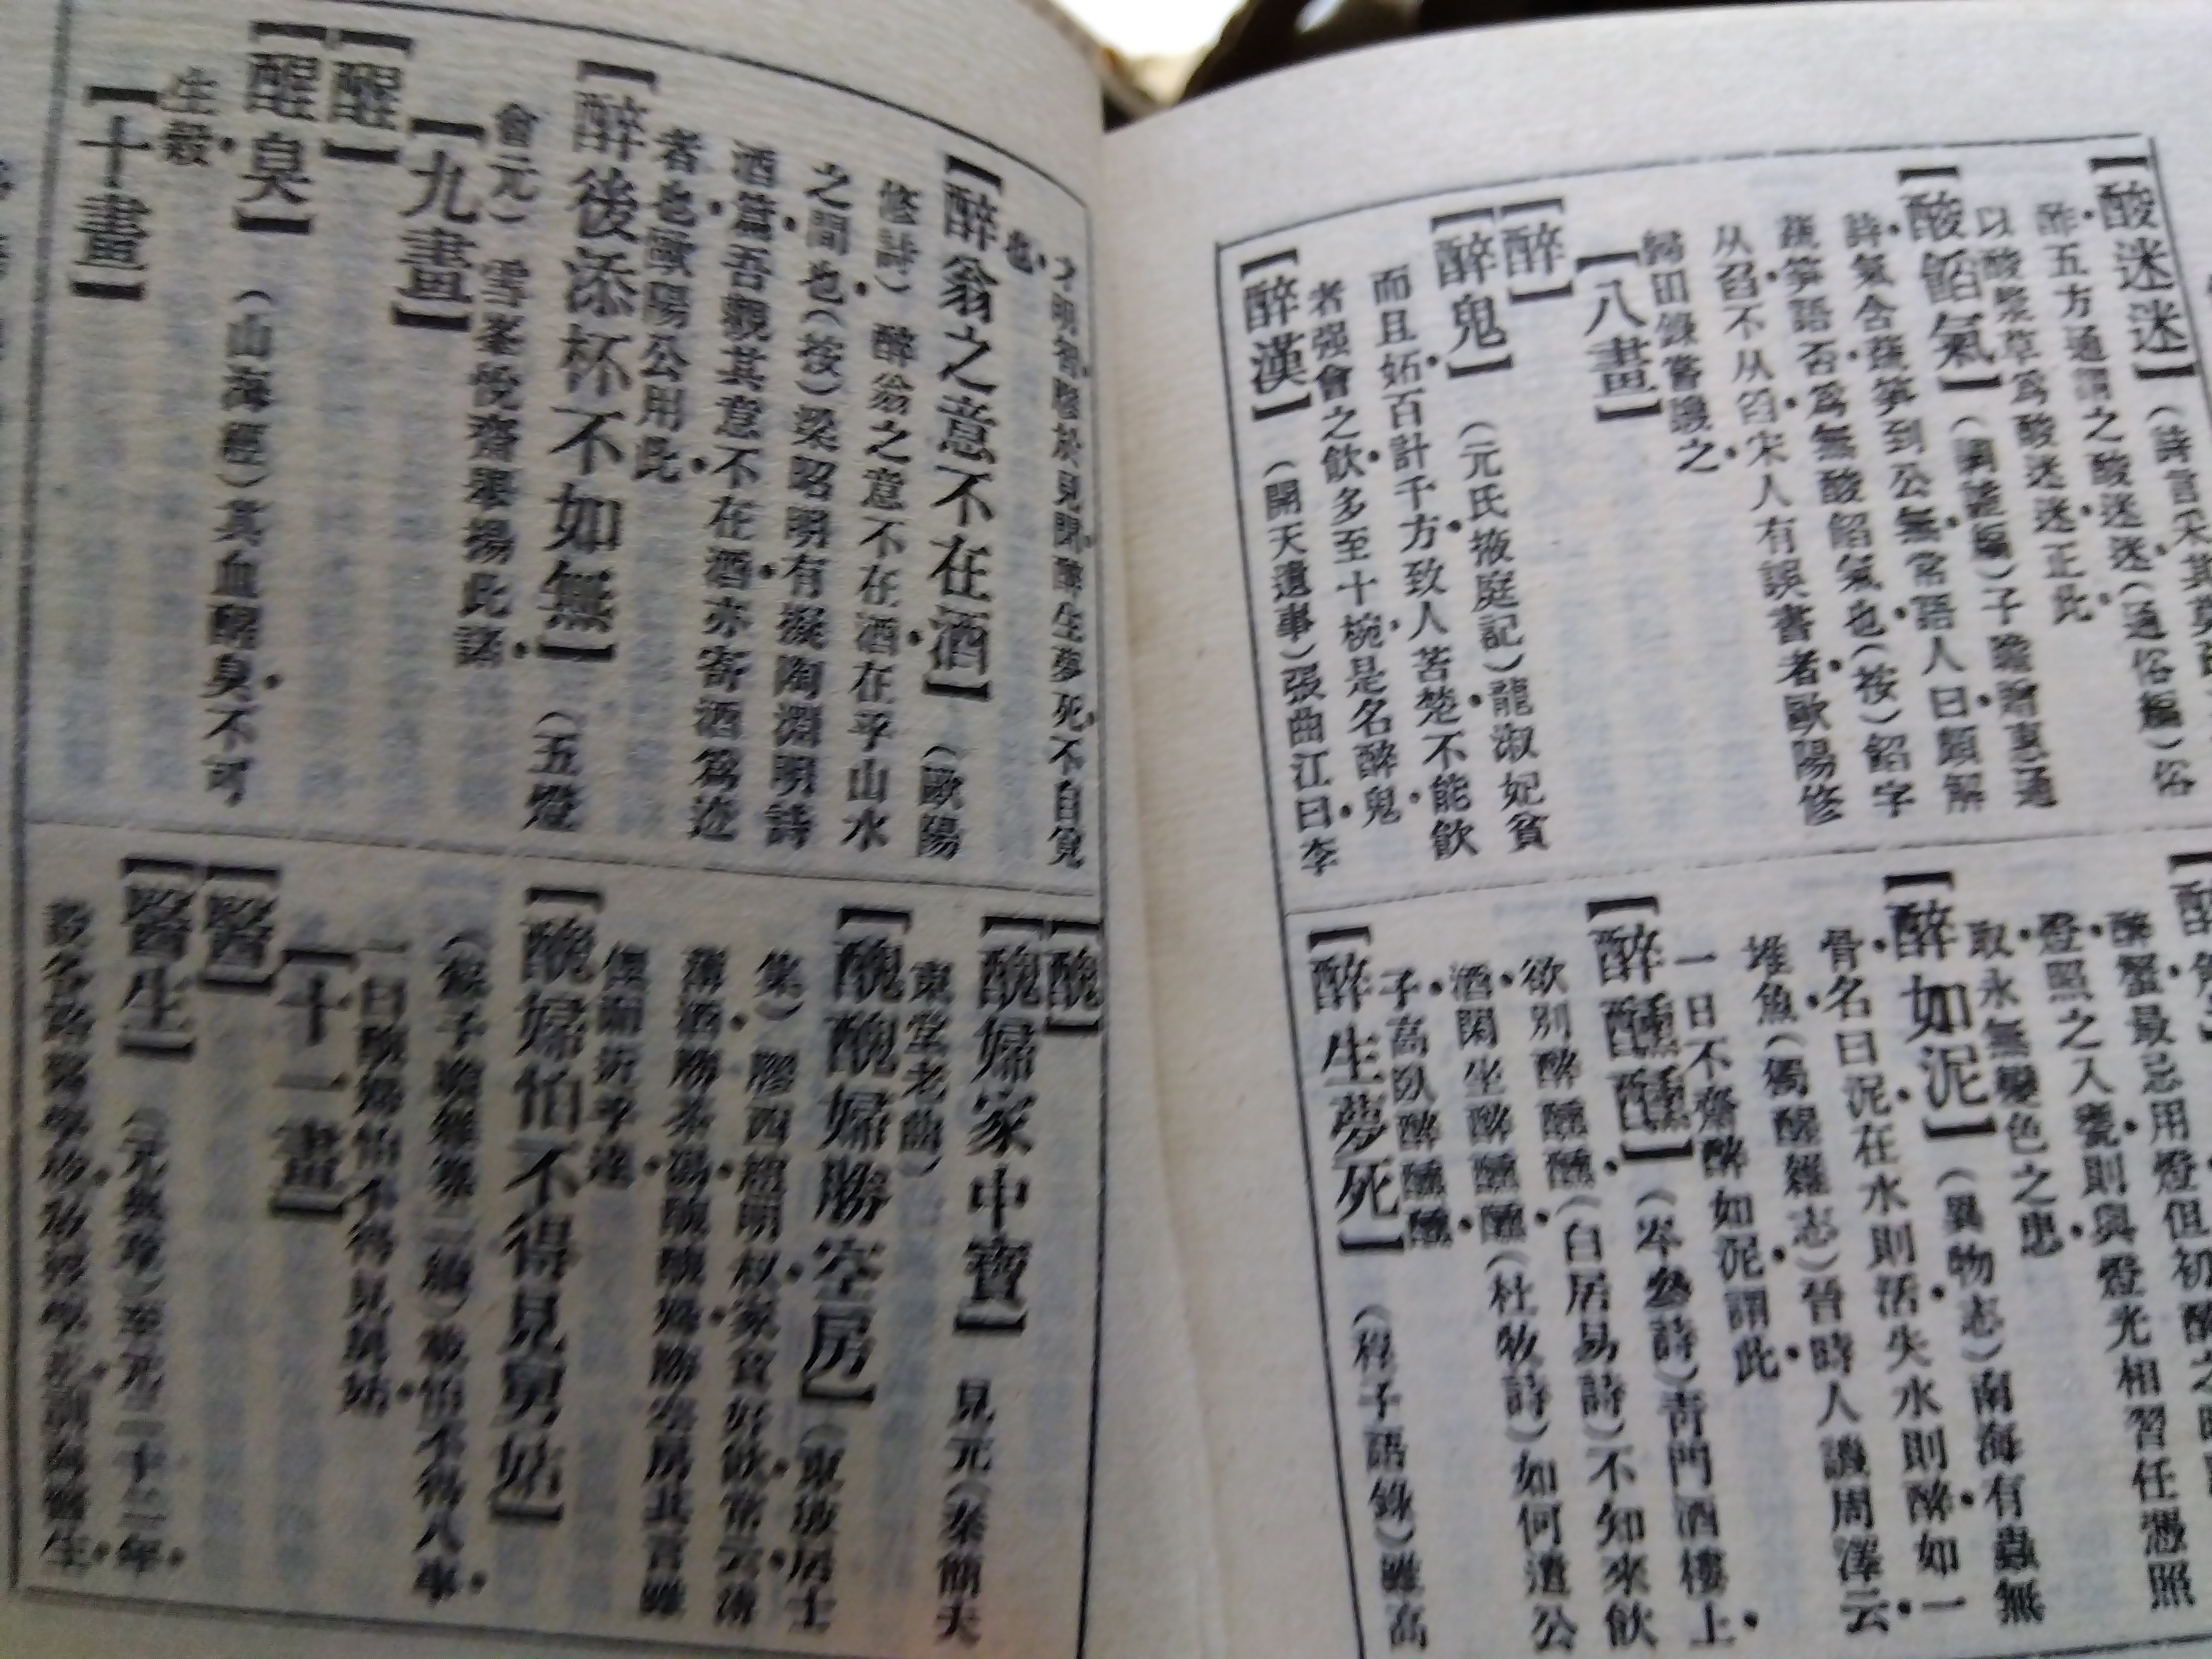 【酸迷迷】（詩言宋
酢五方通謂之酸迷迷（通俗編）俗
以酸漿草爲酸迷迷正此
【酸餡氣】（調謔編）子瞻贈惠通
詩氣含蔬笋到公無常語人曰頗解
蔬笋語否爲無酸餡氣也（按）餡字
从臽不从舀宋人有誤書者歐陽修
歸田錄嘗譏之
【八畫】
【醉】
【醉鬼】（元氏掖庭記）龍淑妃貧
而且妬百計千方致人苦楚不能飲
者强會之飲多至十椀是名醉鬼
【醉漢】（開天遺事）張曲江曰李
醉蟹最忌用燈但初醉之時
燈照之入甕則與燈光相習任憑照
取永無變色之患
【醉如泥】（異物志）南海有蟲無
骨名曰泥在水則活失水則醉如一
堆魚（獨醒雜志）晉時人譏周澤云
一日不齋醉如泥謂此
【醉醺醺】（岑參詩）靑門酒樓上
欲別醉醺醺（白居易詩）不知來飲
酒閑坐醉醺醺（杜牧詩）如何遣公
子高臥醉醺醺
【醉生夢死】（程子語錄）雖高
才明智膠於見聞醉生夢死不自覺
也
【醉翁之意不在酒】（歐陽
修詩）醉翁之意不在酒在乎山水
之間也（按）梁昭明有擬陶淵明詩
酒篇吾觀其意不在酒亦寄酒爲迹
者也歐陽公用此
【醉後添杯不如無】（五燈
會元）雪峯悅齋舉揚此語
【九畫】
【醒】
【醒臭】（山海經）其血醒臭不可
生穀
【十畫】
【醜】
【醜婦家中寶】見元（秦簡夫
東堂老曲）
【醜醜婦勝空房】（東坡居士
集）膠西趙明叔家貧好飲常云薄
薄酒勝茶湯醜醜婦勝空房其言雖
俚而近乎達
【醜婦怕不得見舅姑】
一曰醜婦怕不得見舅姑
【十一畫】
【醫】
【醫生】（元典章）至元二十二年